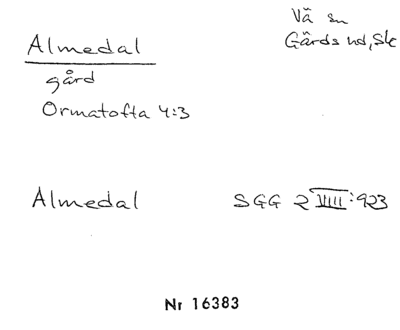 Almedal
Vä sn
Gärds hd, Sk
gård
Ormatofta 4:3
Almedal
SGG 2 VIII:923
Nr 16383